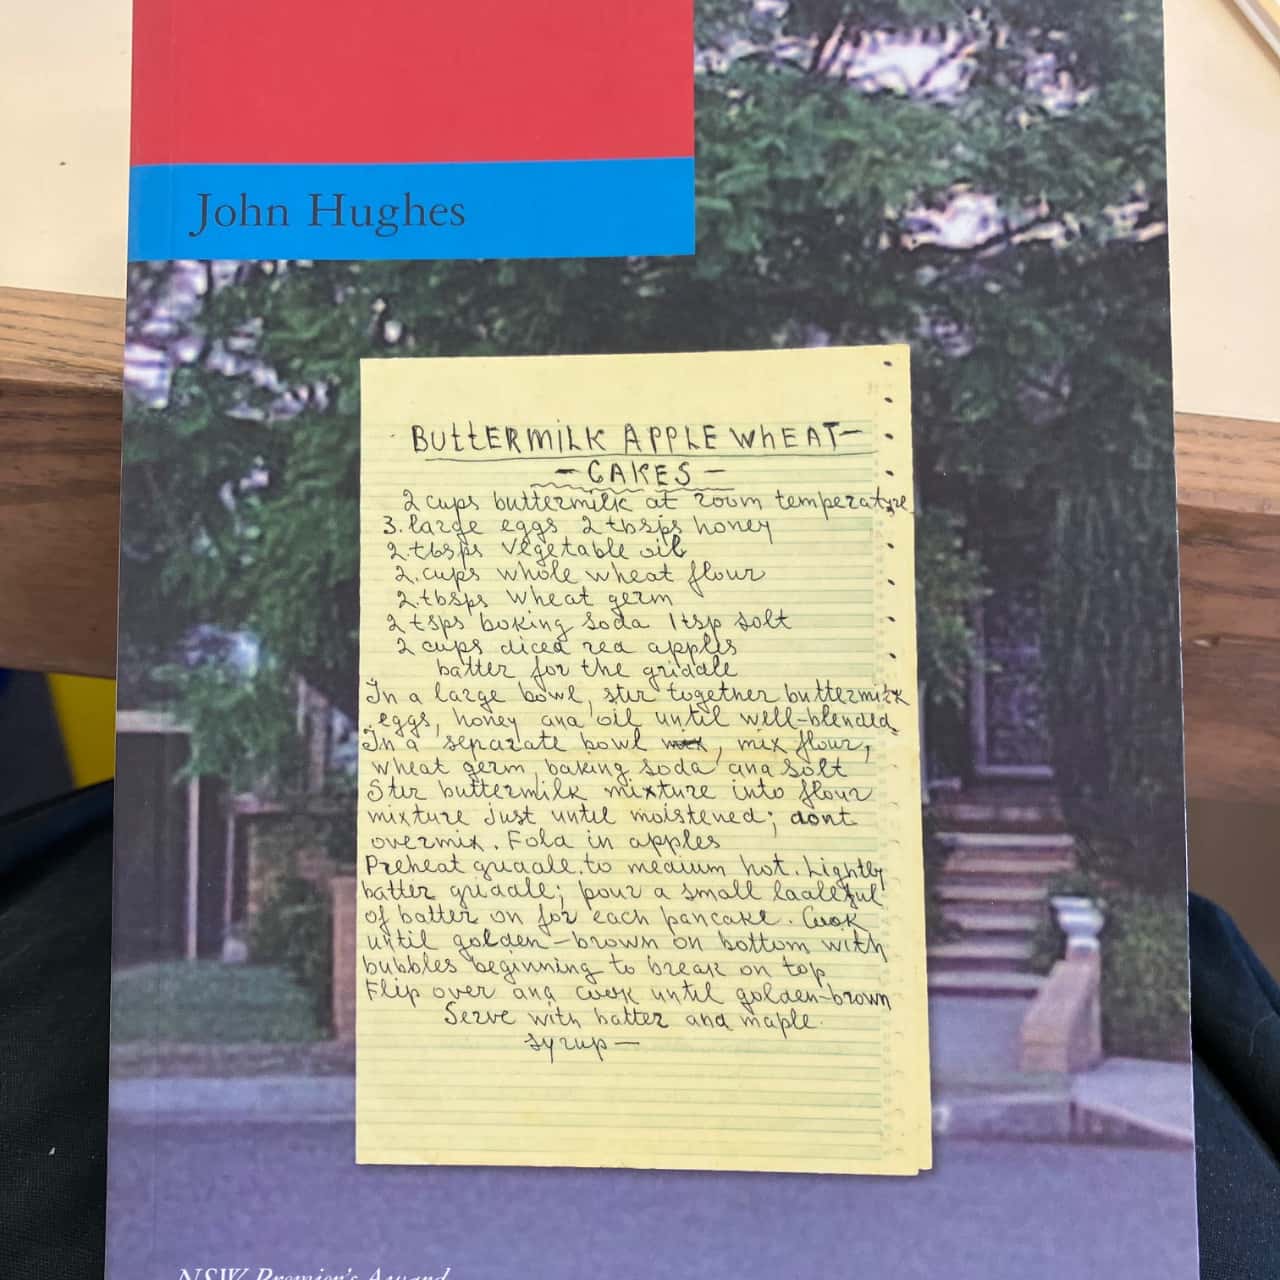 John Hughes
BUttERMiLK APPLE WhEAT—
— CAKES —
2 cups buttermilk at room temperature
3. large eggs 2 tbsps honey
2. tbsps vegetable oil
2. cups whole wheat flour
2. tbsps wheat germ
2 tsps baking soda 1 tsp solt
2 cups diced red apples
batter for the griddle
In a large bowl, stir together buttermilk
eggs, honey and oil until well-blended
In a separate bowl mix, mix flour,
wheat germ, baking soda and solt
Stir buttermilk mixture into flour
mixture just until moistened; dont
overmix. Fold in apples
Preheat griddle to medium hot. Lightly
batter griddle; pour a small ladleful
of batter on for each pancake. Cook
until golden-brown on bottom with
bubbles beginning to break on top
Flip over and cook until golden-brown
Serve with batter and maple.
syrup —
NSW Premier's Award